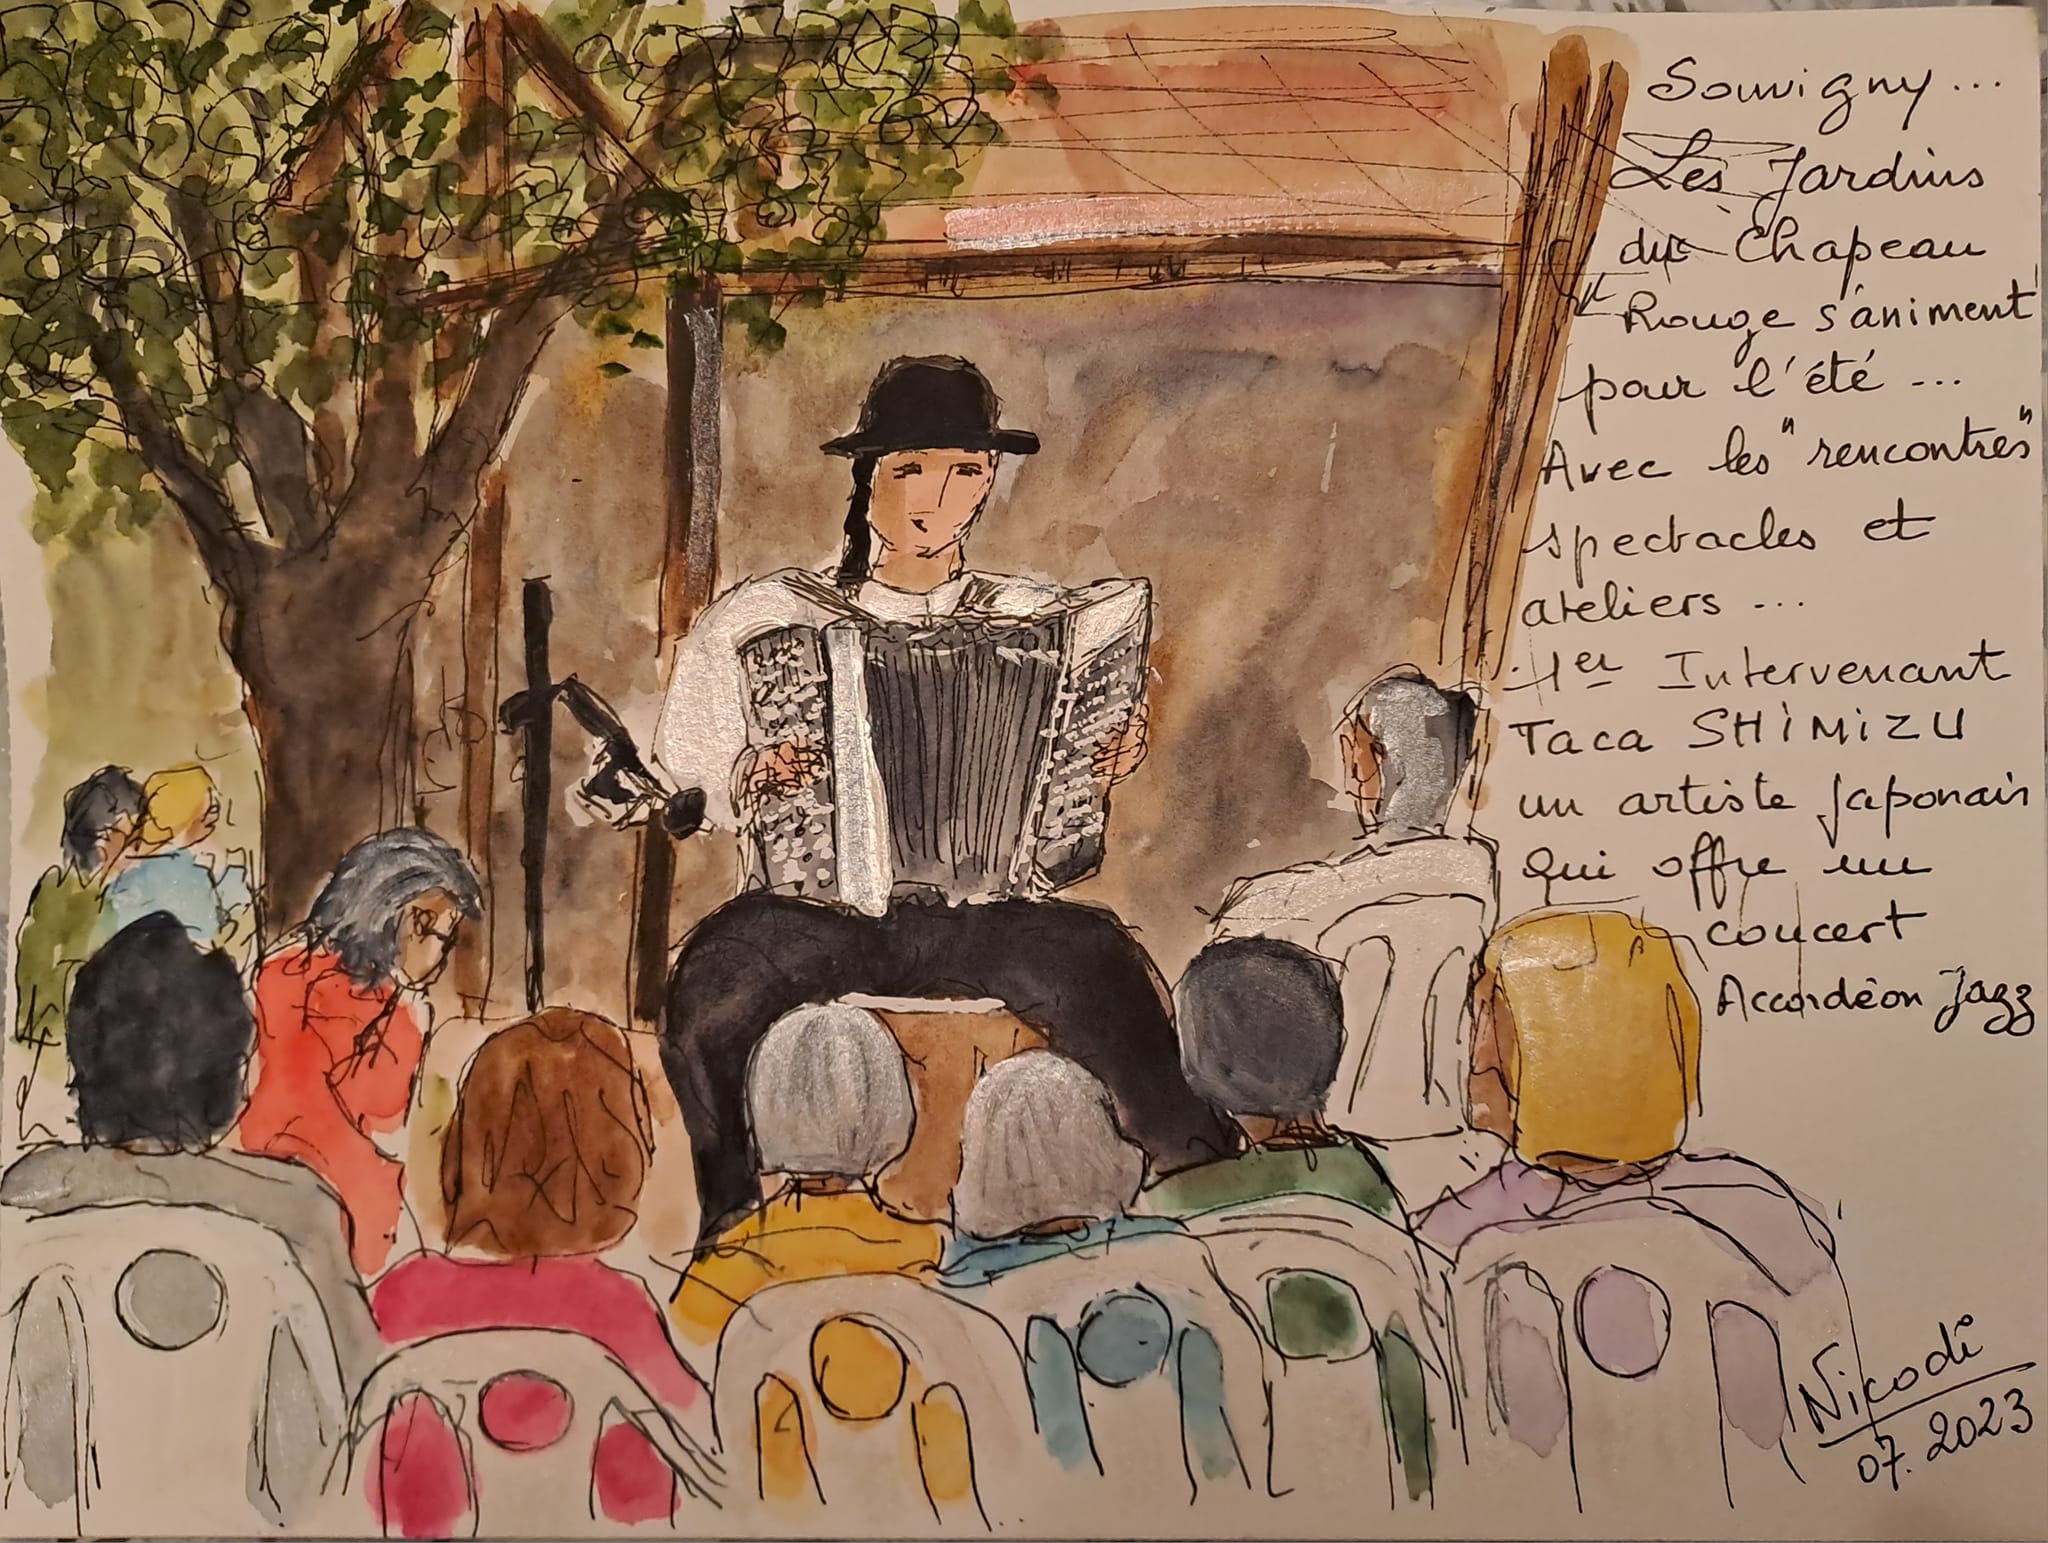 Souvigny...
Les Jardins
du Chapeau
Rouge s'animent
pour l'été...
Avec les "rencontres"
spectacles et
ateliers...
1er Intervenant
Taca SHIMIZU
un artiste Japonais
qui offre un
concert
Accordéon Jazz
Nicodi
07.2023